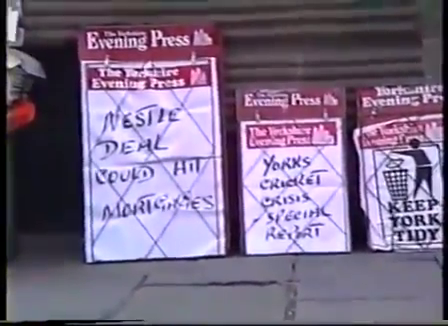 The Yorkshire
Evening Press
The Yorkshire
Evening Press
NESTLE
DEAL
COULD HIT
MORTGAGES
The Yorkshire
Evening Press
The Yorkshire
Evening Press
YORKS
CRICKET
CRISIS
SPECIAL
REPORT
The Yorkshire
Evening Press
The Yorkshire
Evening Press
KEEP
YORK
TIDY